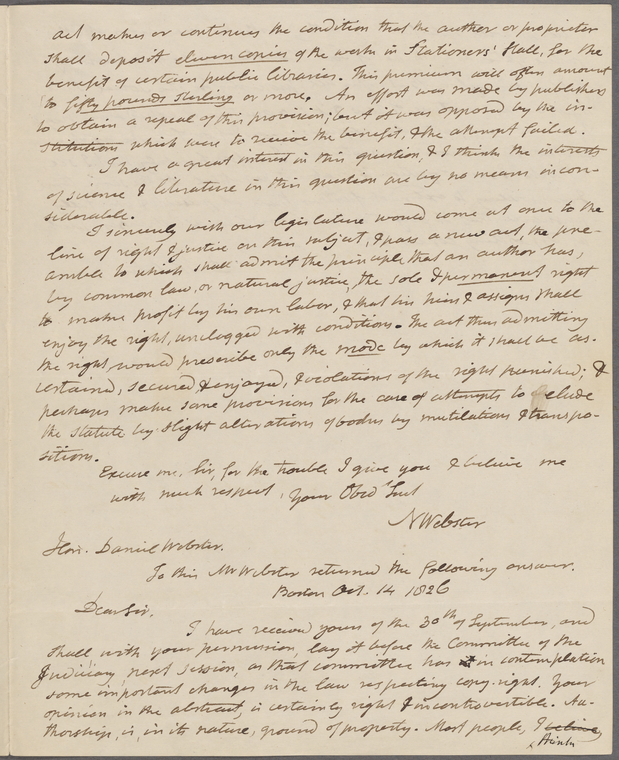 act makes or continues the condition that the author or proprietor
shall deposit eleven copies of the work in Stationers' Hall, for the
benefit of certain public libraries. This premium will often amount
to fifty pounds sterling or more. An effort was made by publishers
to obtain a repeal of this provision; but it was opposed by the in-
stitutions which were to receive the benefit, & the attempt failed.
I have a great interest in this question, & I think the interests
of science & literature in this question are by no means incon-
siderable.
I sincerely wish our legislature would come at once to the
line of right & justice on this subject, & pass a new act, the pre-
amble to which shall admit the principle, that an author has,
by common law, or natural justice, the sole & permanent right
to make profit by his own labor, & that his heirs & assigns shall
enjoy the right, unclogged with conditions. The act thus admitting
the right, would prescribe only the mode by which it shall be as-
certained, secured & enjoyed, & violations of the right punished; &
perhaps make some provisions for the case of attempts to elude
the statute by slight alterations of books by mutilations & transpo-
sitions.
Excuse me, Sir, for the trouble I give you & believe me
with much respect, your Obed Servt
N Webster
Hon. Daniel Webster.
To this Mr Webster returned the following answer.
Boston Oct. 14 1826
Dear Sir.
I have received yours of the 30th of September, and
shall with your permission, lay it before the Committee of the
Judiciary, next session, as that committee has in contemplation
some important changes in the law respecting copy-right. Your
opinion in the abstract, is certainly right & incontrovertible. Au-
thorship, is, in its nature, ground of property. Most people, I
think